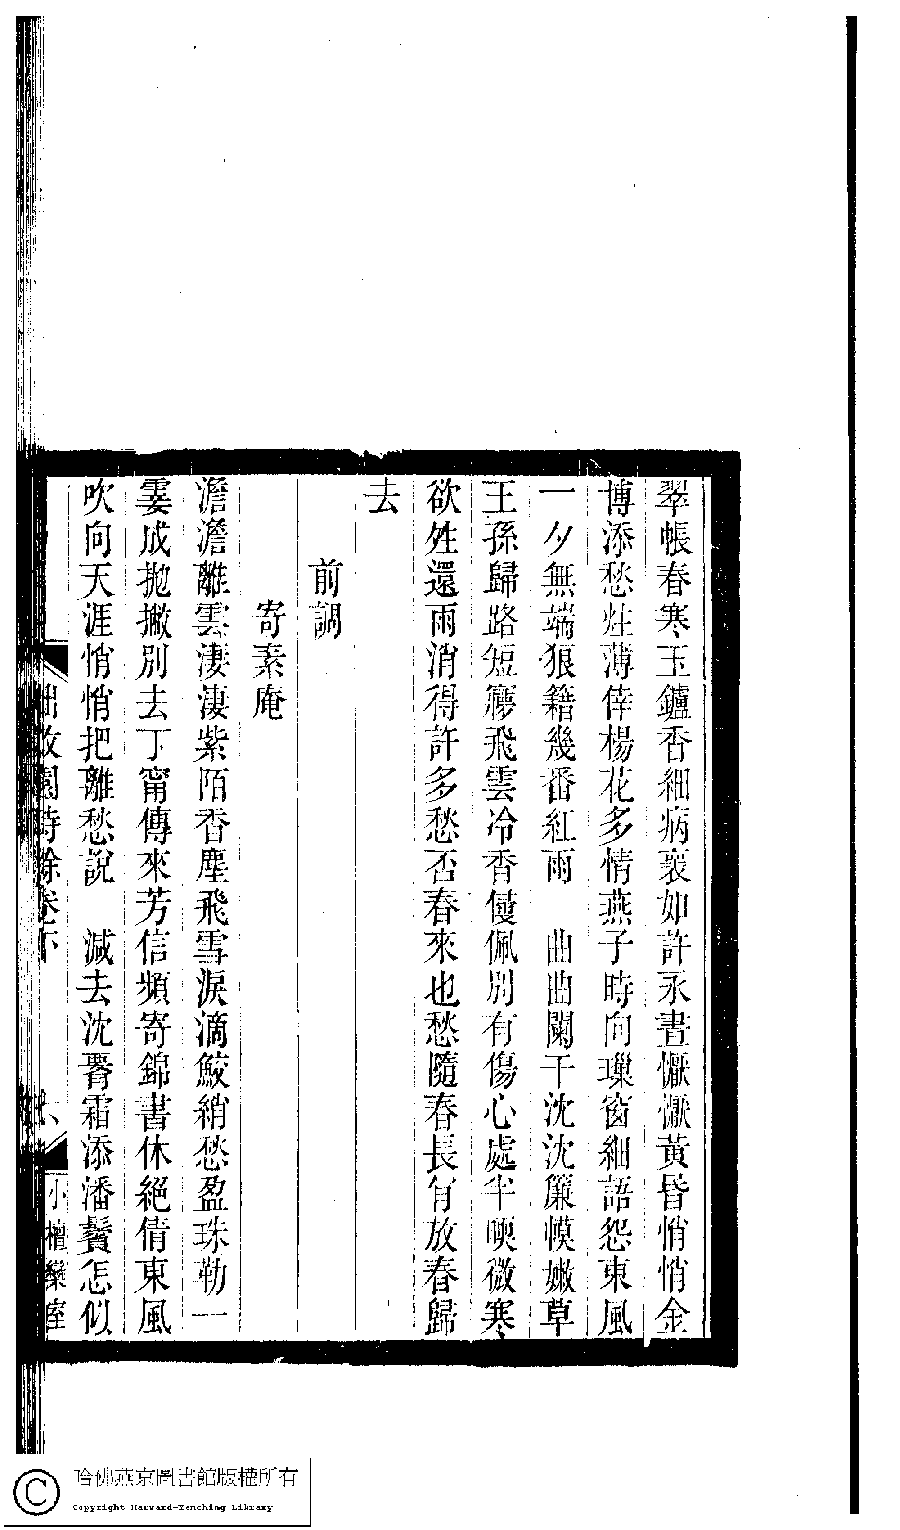 翠帳春寒玉鑪香細病裏如許永晝懨懨黃昏悄悄金
博添愁炷薄倖楊花多情燕子時向瑣窗細語怨東風
一夕無端狼籍幾番紅雨　曲曲闌干沈沈簾幙嫩草
王孫歸路短㝱飛雲冷香侵佩別有傷心處半暝微寒
欲姓還雨消得許多愁否春來也愁隨春長肯放春歸
去
前調
寄素庵
澹澹離雲淒淒紫陌香塵飛雪淚滴鮫綃愁盈珠勒一
霎成拋撇別去丁甯傳來芳信頻寄錦書休絕倩東風
吹向天涯悄悄把離愁說　減去沈腰霜添潘鬢怎似
拙政園詩餘卷下
六
小檀欒室
哈佛燕京圖書館版權所有
Copyright Harvard-Yenching Library